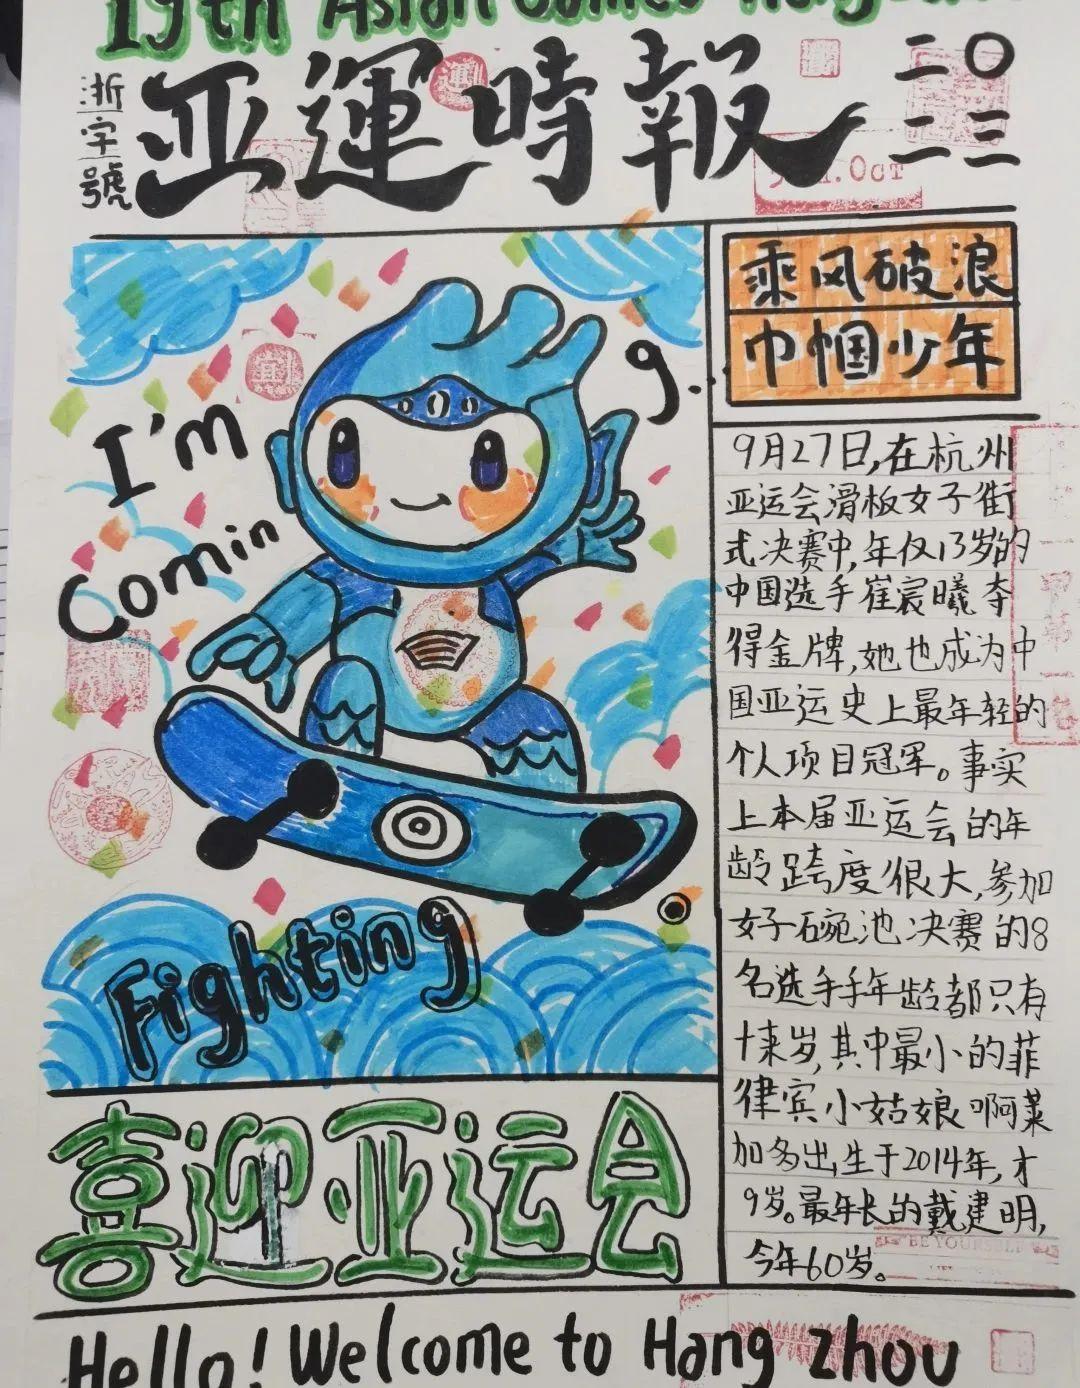 19th Asian Games Hangzhou
浙字號
亚運時報
二〇
二三
Oct
乘风破浪
巾帼少年
I'm
Coming.
9月27日,在杭州
亚运会滑板女子街
式决赛中,年仅13岁的
中国选手崔宸曦夺
得金牌,她也成为中
国亚运史上最年轻的
个人项目冠军。事实
上本届亚运会的年
龄跨度很大,参加
女子碗池决赛的8
名选手手年龄都只有
十来岁,其中最小的菲
律宾小姑娘啊莱
加多出生于2014年,才
9岁。最年长的戴建明,
今年60岁。
BE YOURSELF
Fighting
喜迎亚运会
Hello! Welcome to Hang zhou